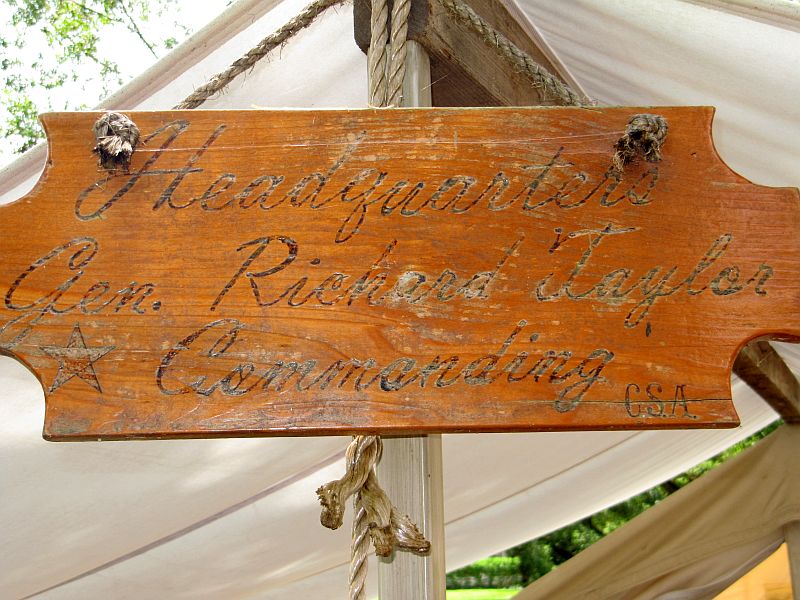 Headquarters
Gen. Richard Taylor
Commanding
C.S.A.